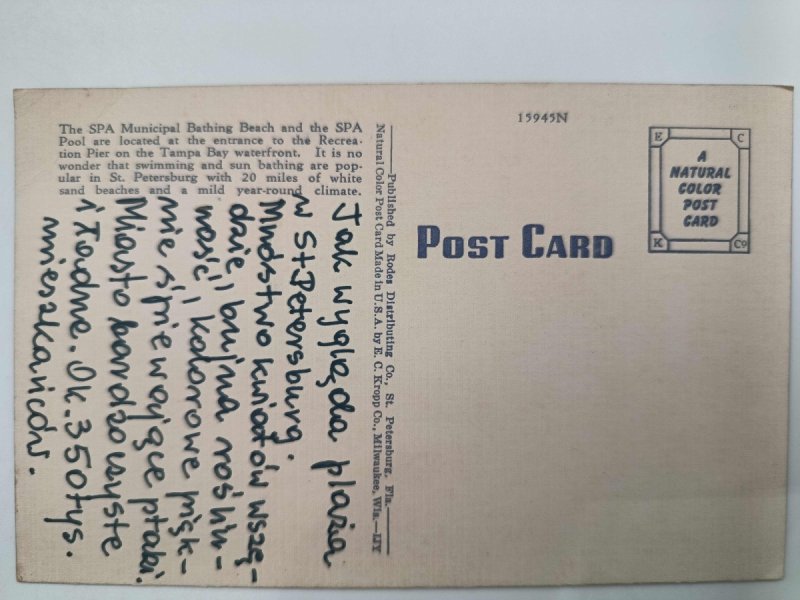 The SPA Municipal Bathing Beach and the SPA
Pool are located at the entrance to the Recrea-
tion Pier on the Tampa Bay waterfront. It is no
wonder that swimming and sun bathing are pop-
ular in St. Petersburg with 20 miles of white
sand beaches and a mild year-round climate.
Jak wygląda plaża
w St Petersburg.
Mnóstwo kwiatów wszę-
dzie, bujna roślin-
ność, kolorowe pięk-
nie śpiewające ptaki.
Miasto bardzo czyste
i ładne. Ok. 350 tys.
mieszkańców.
Published by Rodes Distributing Co., St. Petersburg, Fla.
Natural Color Post Card Made in U.S.A. by E. C. Kropp Co., Milwaukee, Wis.—IJY
15945N
POST CARD
E C
A
NATURAL
COLOR
POST
CARD
K Co